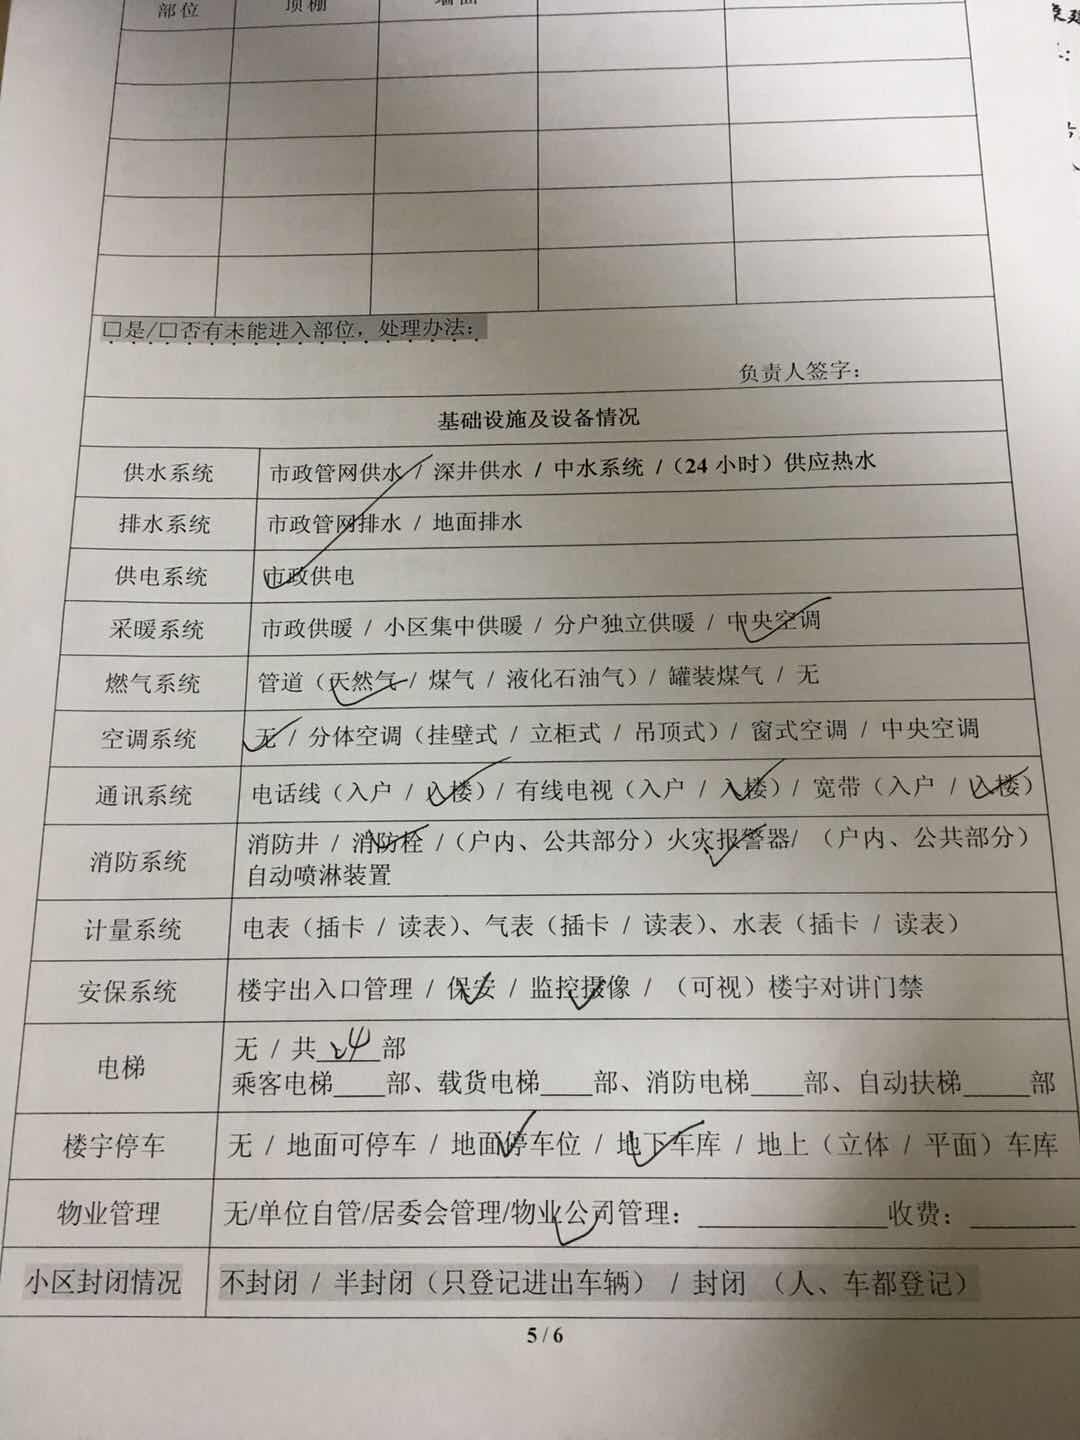 部位 顶棚 墙面
□是/□否有未能进入部位，处理办法：
负责人签字：
基础设施及设备情况
供水系统 市政管网供水 / 深井供水 / 中水系统 /（24 小时）供应热水
排水系统 市政管网排水 / 地面排水
供电系统 市政供电
采暖系统 市政供暖 / 小区集中供暖 / 分户独立供暖 / 中央空调
燃气系统 管道（天然气 / 煤气 / 液化石油气）/ 罐装煤气 / 无
空调系统 无 / 分体空调（挂壁式 / 立柜式 / 吊顶式）/ 窗式空调 / 中央空调
通讯系统 电话线（入户 / 入楼）/ 有线电视（入户 / 入楼）/ 宽带（入户 / 入楼）
消防系统 消防井 / 消防栓 /（户内、公共部分）火灾报警器/ （户内、公共部分）
自动喷淋装置
计量系统 电表（插卡 / 读表）、气表（插卡 / 读表）、水表（插卡 / 读表）
安保系统 楼宇出入口管理 / 保安 / 监控摄像 / （可视）楼宇对讲门禁
电梯 无 / 共____部
乘客电梯____部、载货电梯____部、消防电梯____部、自动扶梯_____部
楼宇停车 无 / 地面可停车 / 地面停车位 / 地下车库 / 地上（立体 / 平面）车库
物业管理 无/单位自管/居委会管理/物业公司管理：______________收费：________
小区封闭情况 不封闭 / 半封闭（只登记进出车辆） / 封闭 （人、车都登记）
5 / 6